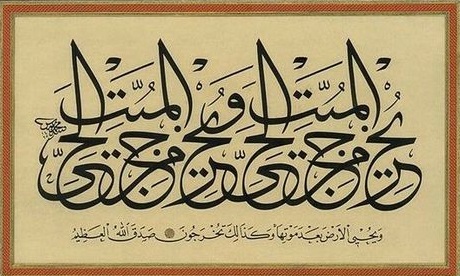 يخرج الحي من الميت ويخرج الميت من الحي
ويحيي الأرض بعد موتها وكذلك تخرجون صدق الله العظيم